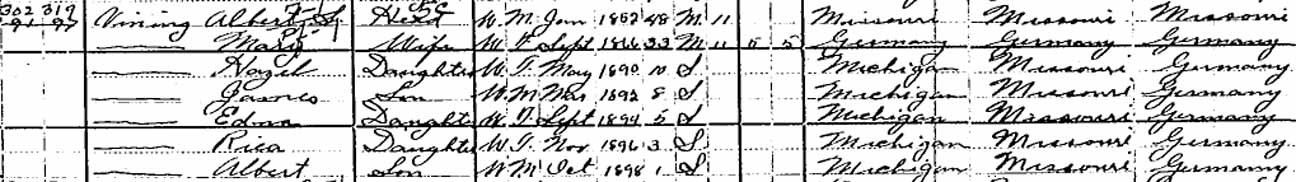 302 319 Vining Albert Head W M Jan 1852 48 M 11 Missouri Missouri Missouri
Mary Wife W F Sept 1866 33 M 11 5 5 Germany Germany Germany
Hazel Daughter W F May 1890 10 S Michigan Missouri Germany
James Son W M Mar 1892 8 S Michigan Missouri Germany
Edna Daughter W F Sept 1894 5 S Michigan Missouri Germany
Rica Daughter W F Nov 1896 3 S Michigan Missouri Germany
Albert Son W M Oct 1898 1 S Michigan Missouri Germany